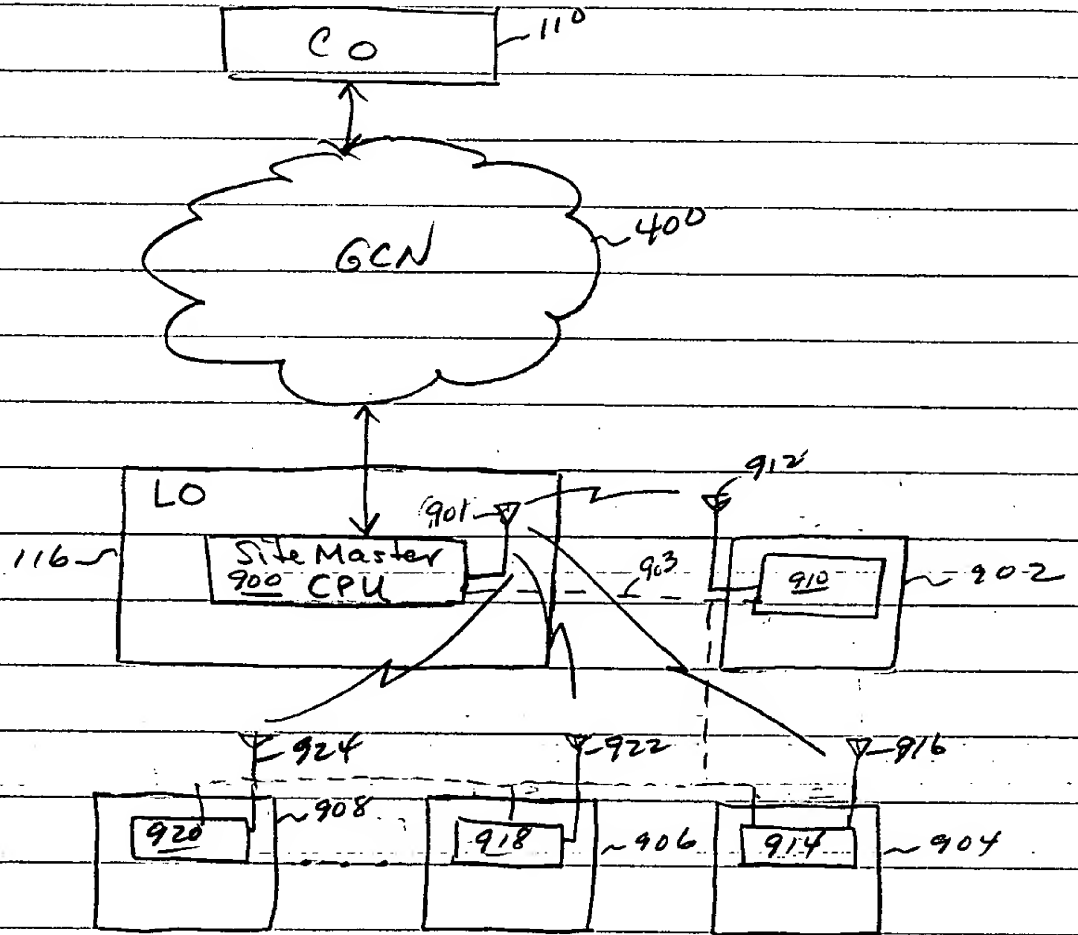 CO
110
GCN
400
LO
901
912
116
Site Master
900 CPU
903
910
902
924
922
916
920
908
918
906
914
904